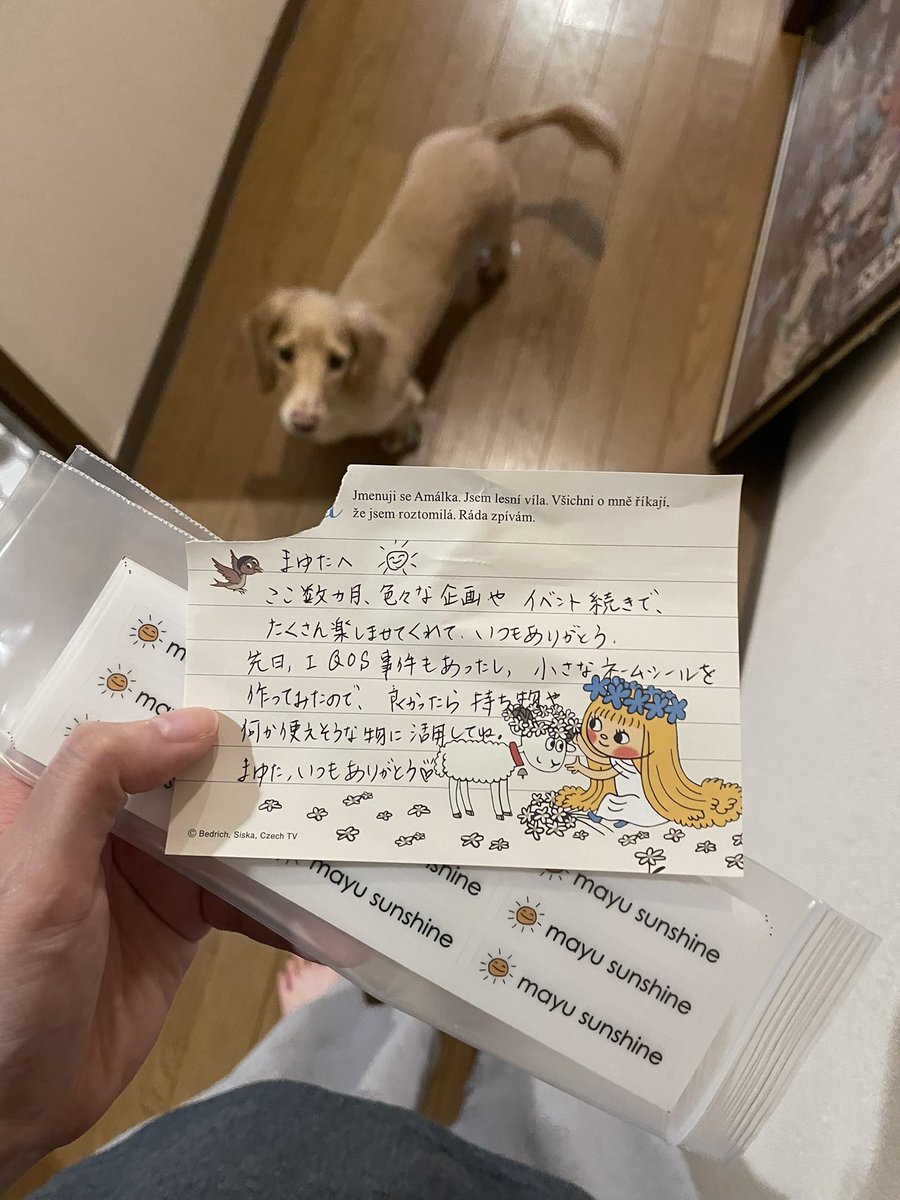 Jmenuji se Amálka. Jsem lesní víla. Všichni o mně říkají,
že jsem roztomilá. Ráda zpívám.
まゆたへ
ここ数カ月、色々な企画や イベント続きで、
たくさん楽しませてくれて、いつもありがとう。
先日、IQOS事件もあったし、小さなネームシールを
作ってみたので、良かったら 持ち物や
何か使えそうな物に活用してね。
まゆた、いつもありがとう♡
© Bedrich, Siska, Czech TV
m
may
shine
mayu sunshine
mayu sunshine
mayu sunshine
mayu sunshine